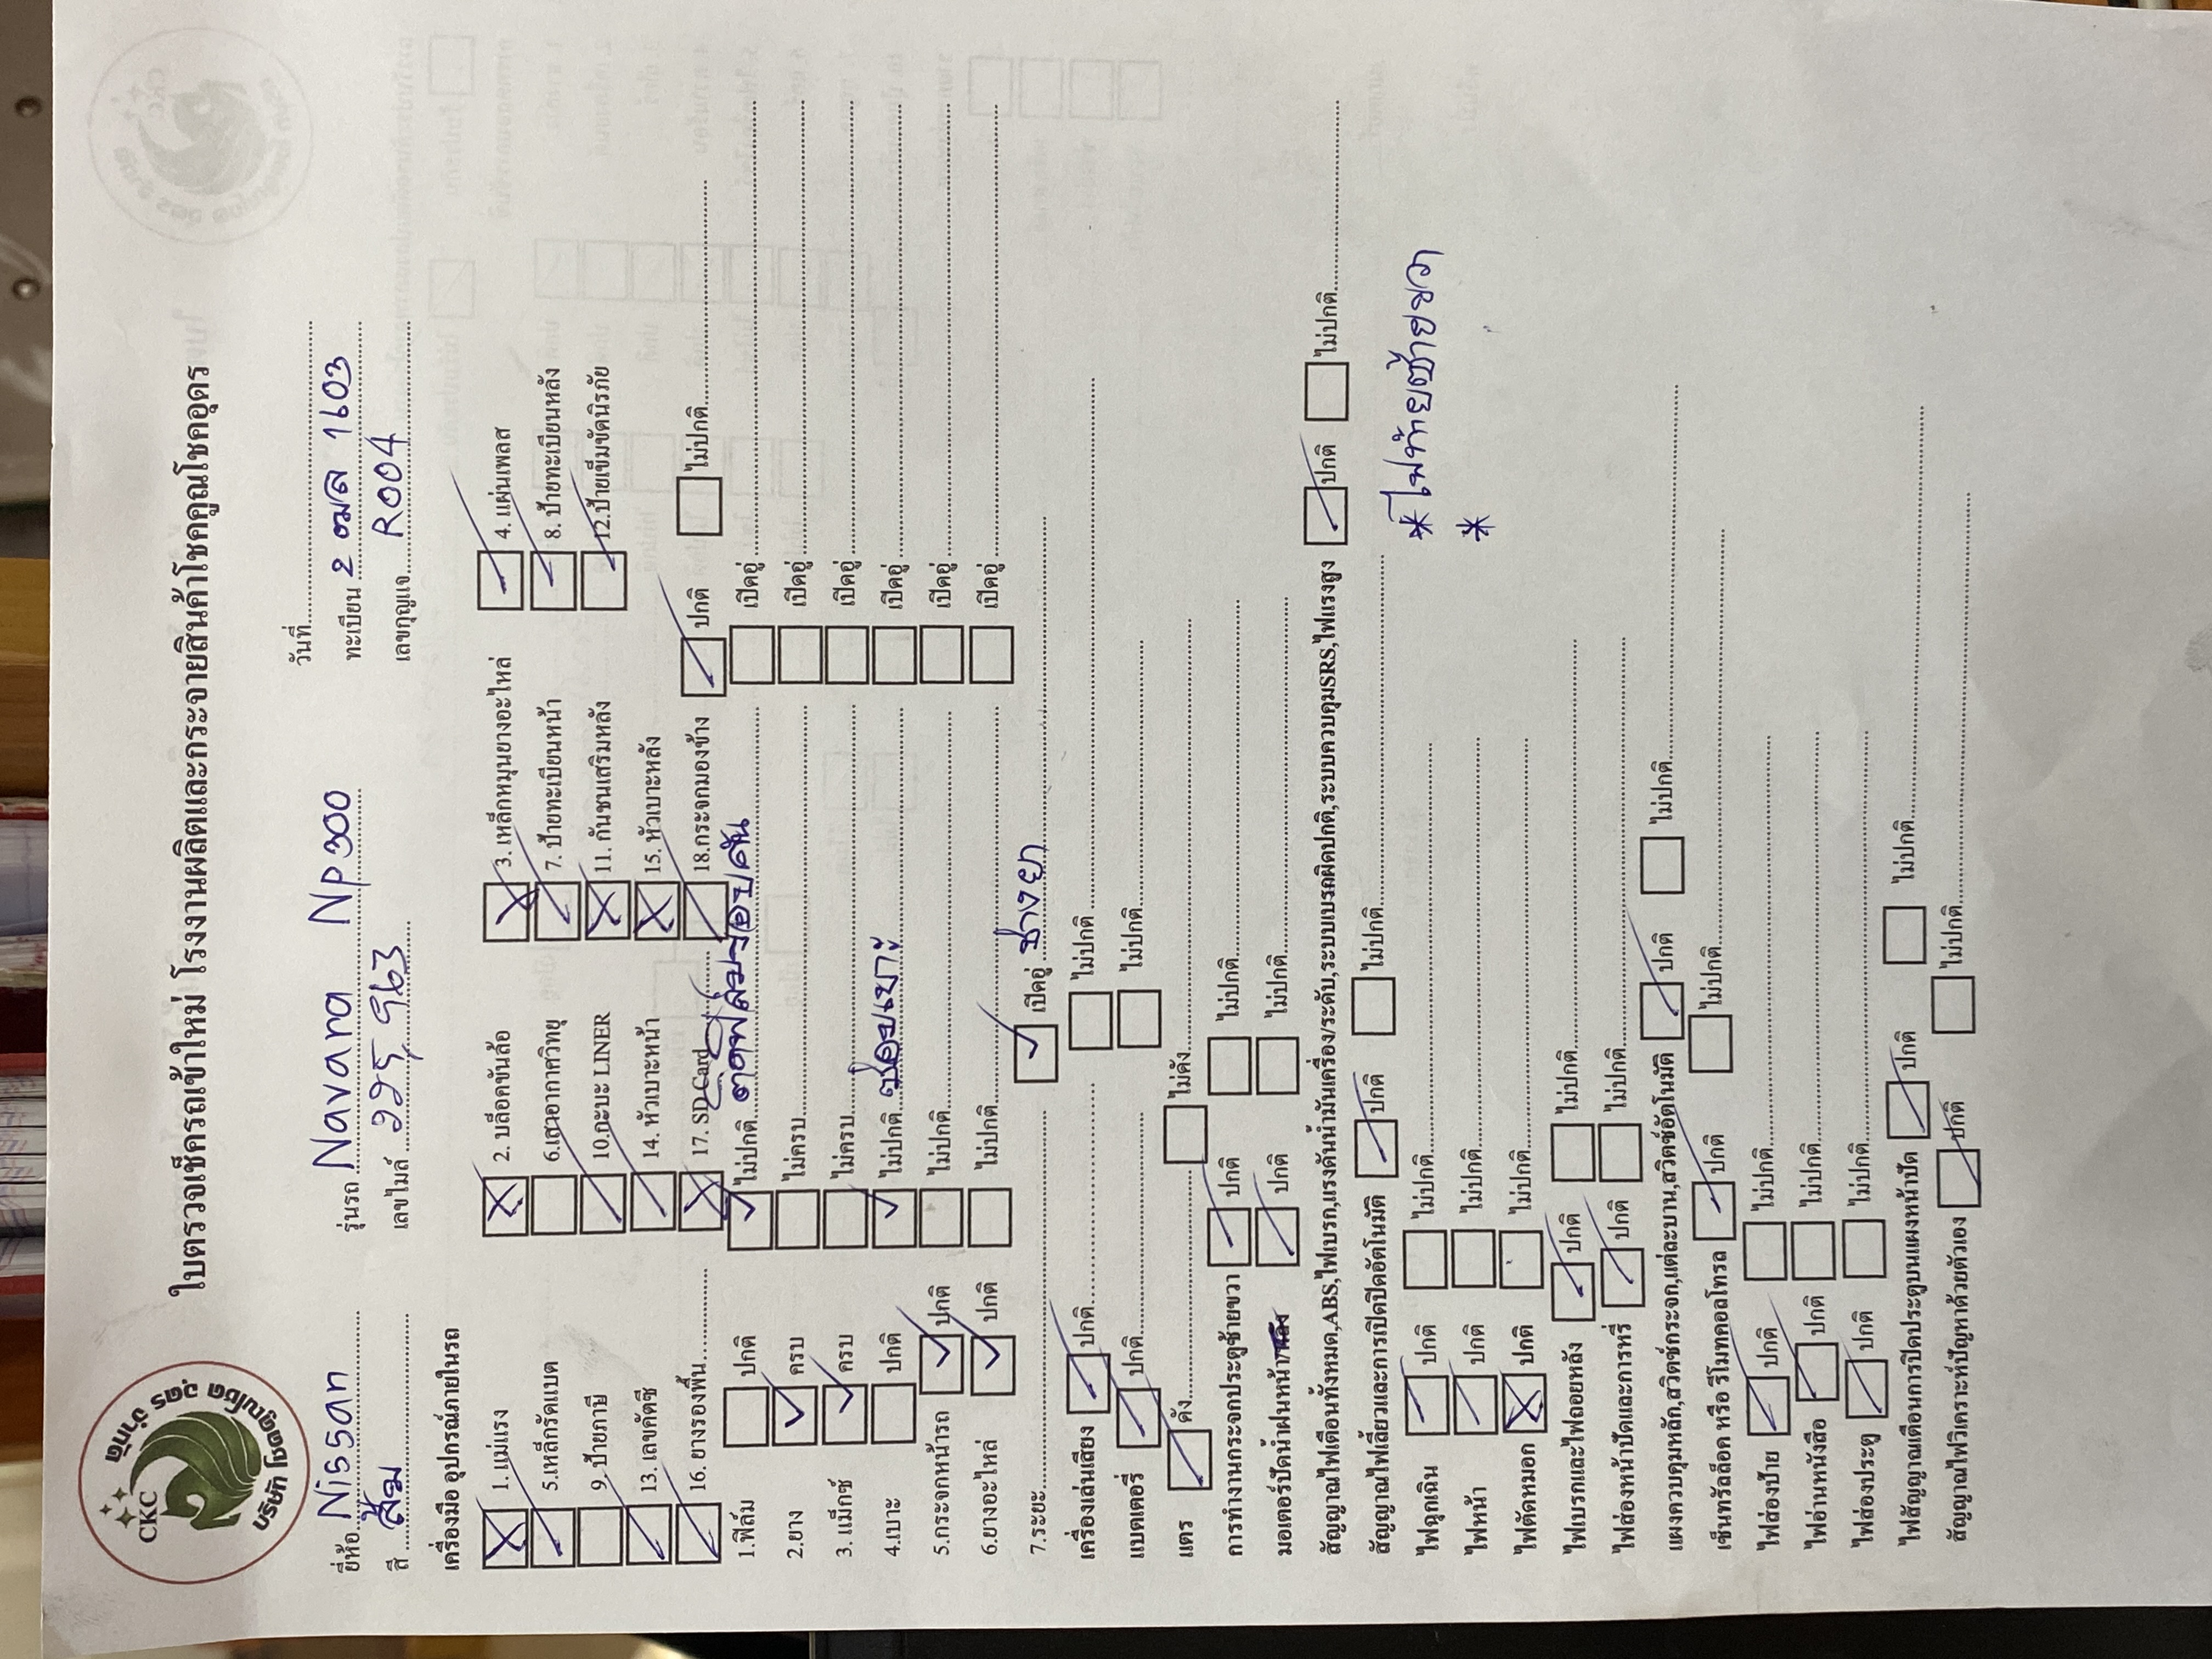 CKC
บริษัท โชคคูณโชค อุดร จำกัด
ใบตรวจเช็ครถเข้าใหม่ โรงงานผลิตและกระจายสินค้าโชคคูณโชคอุดร
วันที่
ยี่ห้อ Nissan รุ่นรถ Navara Np300 ทะเบียน 2 ฒล 1603
สี ส้ม เลขไมล์ เลขกุญแจ R004
เครื่องมือ อุปกรณ์ภายในรถ
1. แม่แรง 2. บล็อคขันล้อ 3. เหล็กหมุนยางอะไหล่ 4. แผ่นเพลส
5.เหล็กรัดแบต 6.เสาอากาศวิทยุ 7. ป้ายทะเบียนหน้า 8. ป้ายทะเบียนหลัง
9. ป้ายภาษี 10.กะบะ LINER 11. กันชนเสริมหลัง 12.ป้ายเข็มขัดนิรภัย
13. เลขคัตซี 14. หัวเบาะหน้า 15. หัวเบาะหลัง
16. ยางรองพื้น 17. SD Card 18.กระจกมองข้าง ปกติ ไม่ปกติ
1.ฟิล์ม ปกติ ไม่ปกติ เปิดอยู่
2.ยาง ครบ ไม่ครบ เปิดอยู่
3. แม็กซ์ ครบ ไม่ครบ เปิดอยู่
4.เบาะ ปกติ ไม่ปกติ ซ่อมเบาะ เปิดอยู่
5.กระจกหน้ารถ ปกติ ไม่ปกติ เปิดอยู่
6.ยางอะไหล่ ปกติ ไม่ปกติ เปิดอยู่
7.ระยะ เปิดอยู่ ช่างยา
เครื่องเล่นเสียง ปกติ ไม่ปกติ
แบตเตอรี่ ปกติ ไม่ปกติ
แตร ดัง ไม่ดัง
การทำงานกระจกประตูซ้ายขวา ปกติ ไม่ปกติ
มอเตอร์ปัดน้ำฝนหน้า/หลัง ปกติ ไม่ปกติ
สัญญาณไฟเตือนทั้งหมด,ABS,ไฟเบรก,แรงดันน้ำมันเครื่อง/ระดับ,ระบบเบรกผิดปกติ,ระบบควบคุมSRS,ไฟแรงสูง ปกติ ไม่ปกติ
สัญญาณไฟเลี้ยวและการเปิดปิดอัตโนมัติ ปกติ ไม่ปกติ
ไฟฉุกเฉิน ปกติ ไม่ปกติ
* ไฟท้ายซ้ายขวา
ไฟหน้า ปกติ ไม่ปกติ
*
ไฟตัดหมอก ปกติ ไม่ปกติ
ไฟเบรกและไฟถอยหลัง ปกติ ไม่ปกติ
ไฟส่องหน้าปัดและการหรี่ ปกติ ไม่ปกติ
แผงควบคุมหลัก,สวิตช์กระจก,แต่ละบาน,สวิตช์อัตโนมัติ ปกติ ไม่ปกติ
เซ็นทรัลล็อค หรือ รีโมทคอลโทรล ปกติ ไม่ปกติ
ไฟส่องป้าย ปกติ ไม่ปกติ
ไฟอ่านหนังสือ ปกติ ไม่ปกติ
ไฟส่องประตู ปกติ ไม่ปกติ
ไฟสัญญาณเตือนการปิดประตูบนแผงหน้าปัด ปกติ ไม่ปกติ
สัญญาณไฟวิเคราะห์ปัญหาด้วยตัวเอง ปกติ ไม่ปกติ